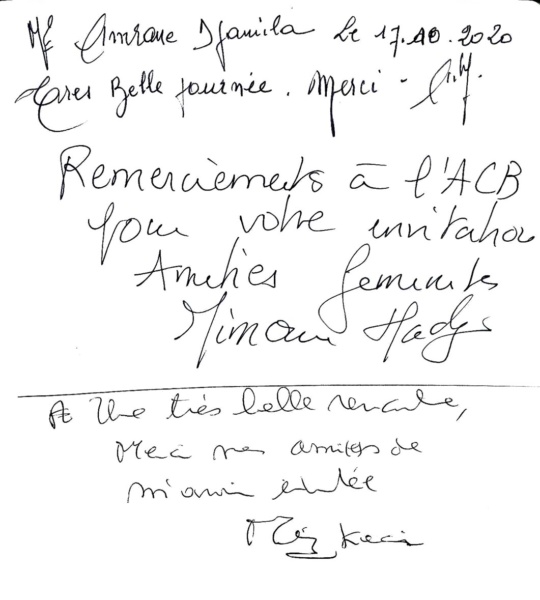 Me Amrane Djamila le 17.10.2020
Très Belle journée. Merci - A.D.
Remerciements à l'ACB
pour votre invitation
Amitiés féministes
Mimouni Hadjs
Une très belle rencontre,
Merci mes ami(e)s de
m'avoir invitée